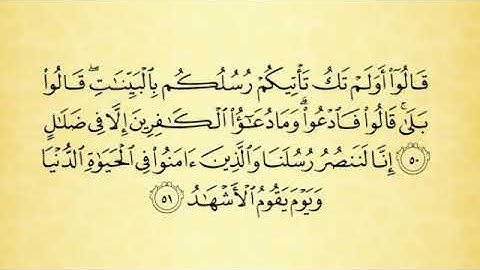 قَالُوٓا۟ أَوَلَمْ تَكُ تَأْتِيكُمْ رُسُلُكُم بِٱلْبَيِّنَـٰتِ ۖ قَالُوا۟
بَلَىٰ ۚ قَالُوا۟ فَٱدْعُوا۟ ۗ وَمَا دُعَـٰٓؤُا۟ ٱلْكَـٰفِرِينَ إِلَّا فِى ضَلَـٰلٍ
٥٠ إِنَّا لَنَنصُرُ رُسُلَنَا وَٱلَّذِينَ ءَامَنُوا۟ فِى ٱلْحَيَوٰةِ ٱلدُّنْيَا
وَيَوْمَ يَقُومُ ٱلْأَشْهَـٰدُ ٥١